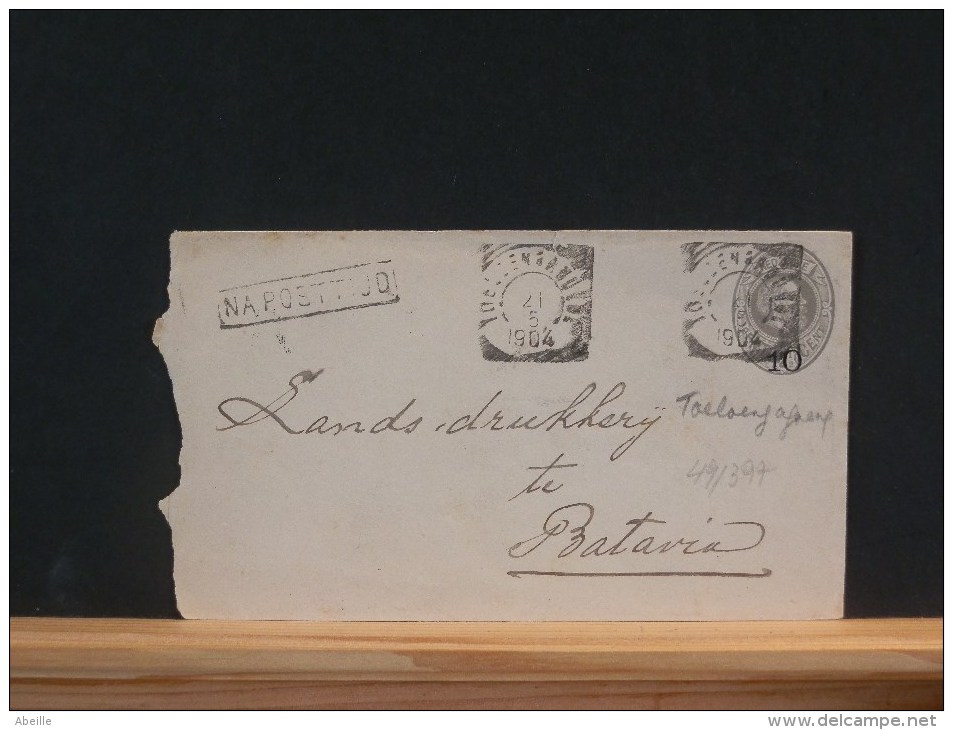 NA POSTTIJD
TOELOENGAGOENG
21
5
1904
1904
10
CENT
Lands drukkery
Toeloengagoeng
te
49/399
Batavia
Abeille
www.delcampe.net